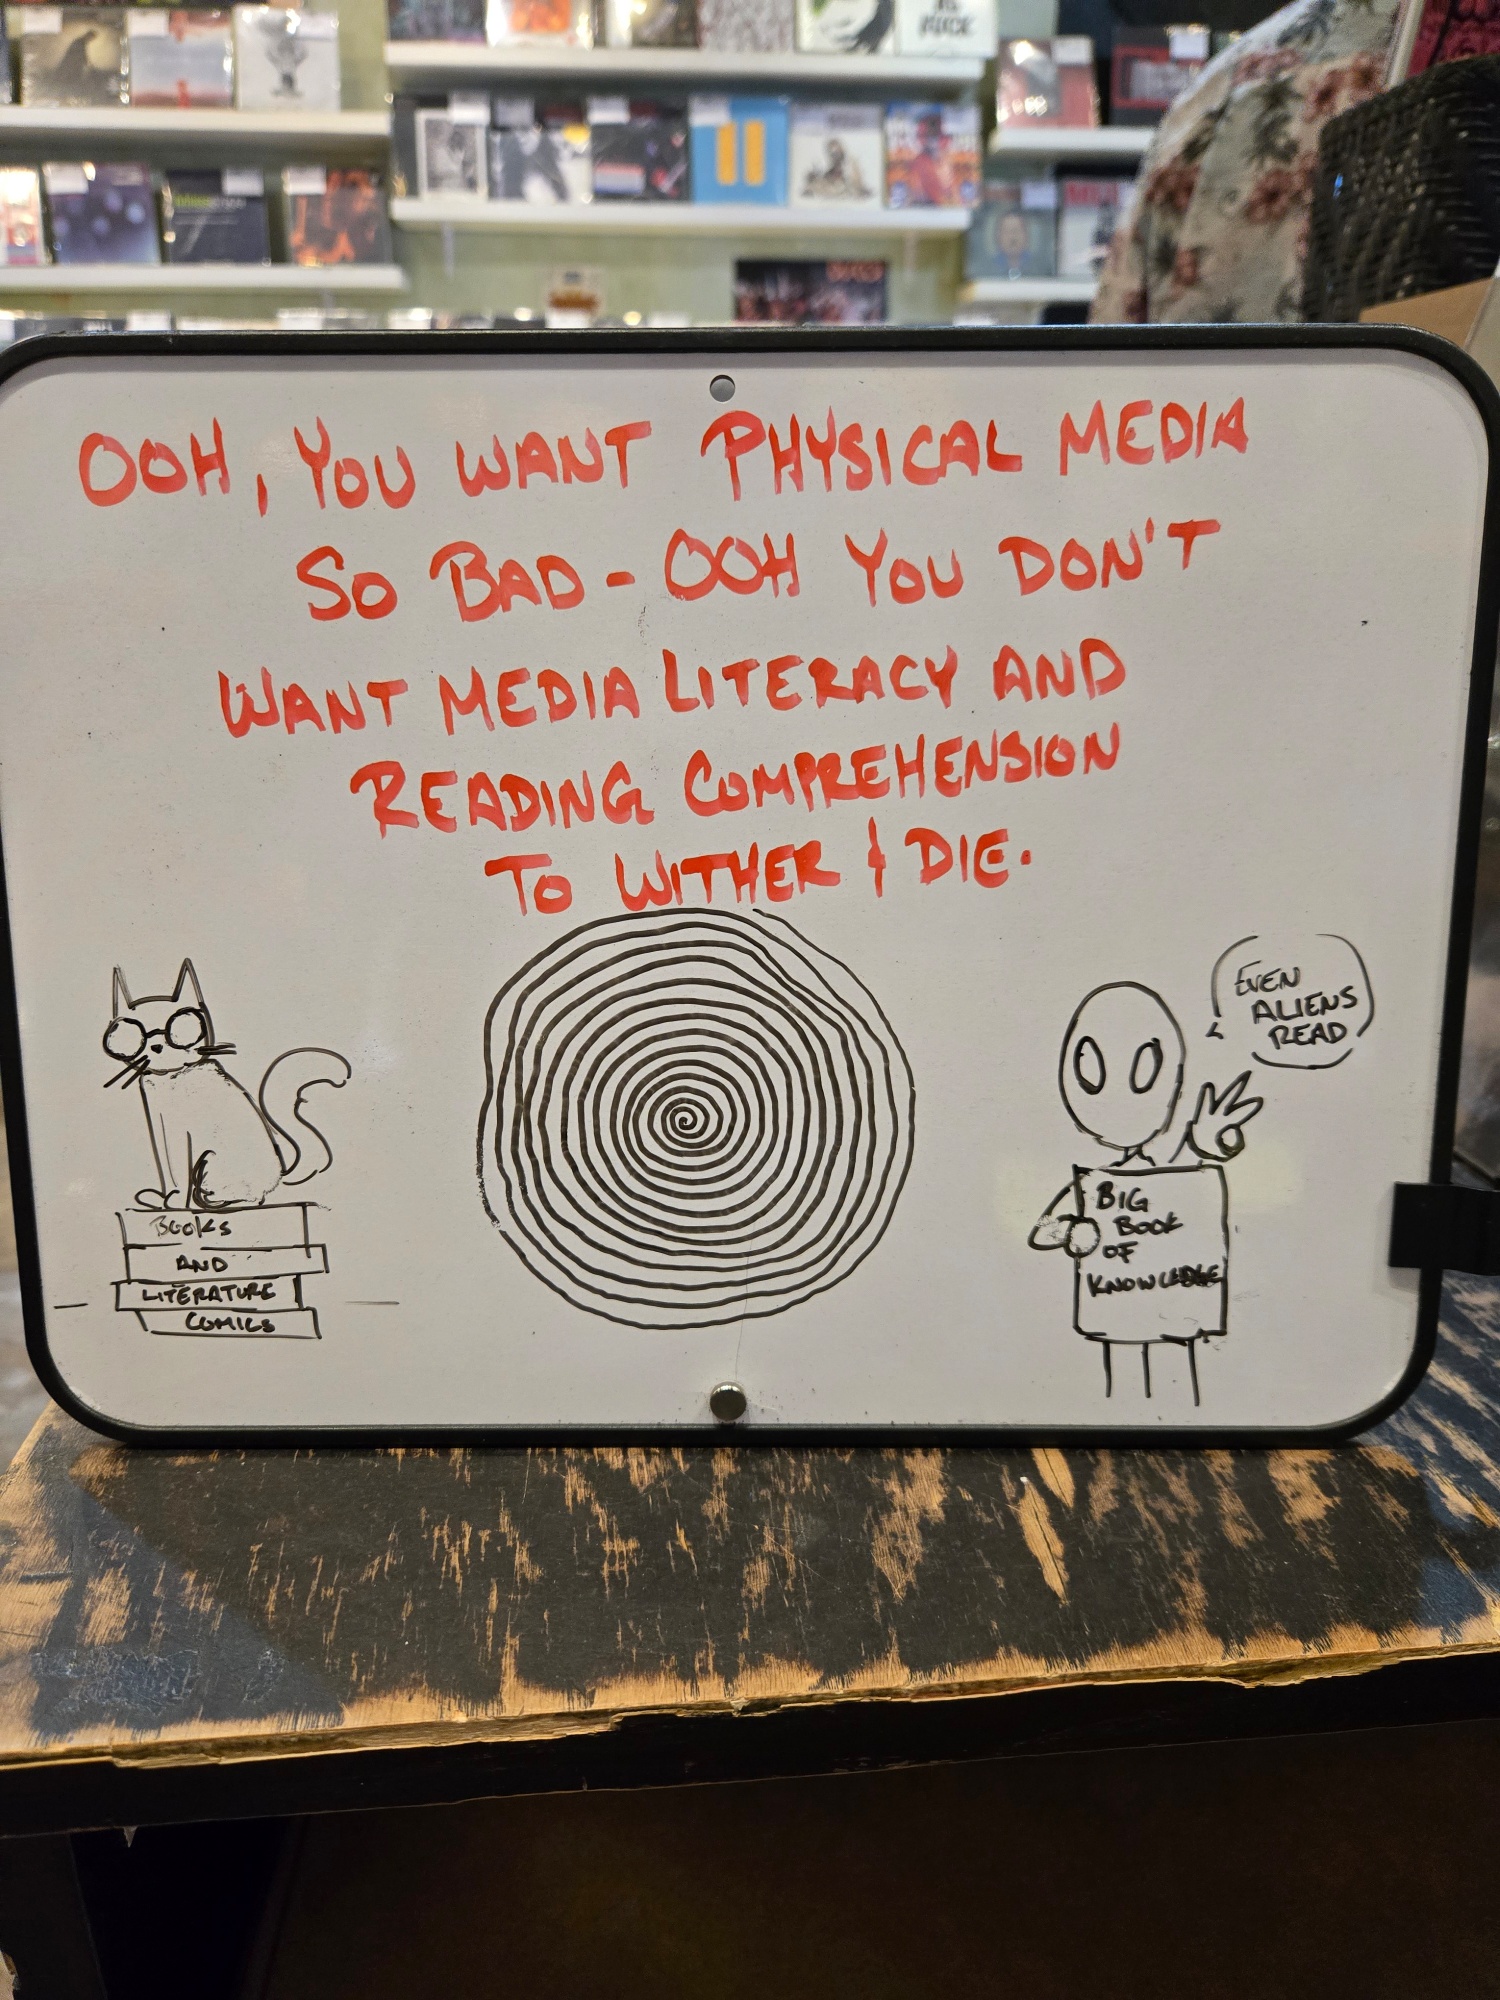 OOH, YOU WANT PHYSICAL MEDIA
SO BAD - OOH YOU DON'T
WANT MEDIA LITERACY AND
READING COMPREHENSION
TO WITHER & DIE.
EVEN
ALIENS
READ
BOOKS
AND
LITERATURE
COMICS
BIG
BOOK
OF
KNOWLEDGE